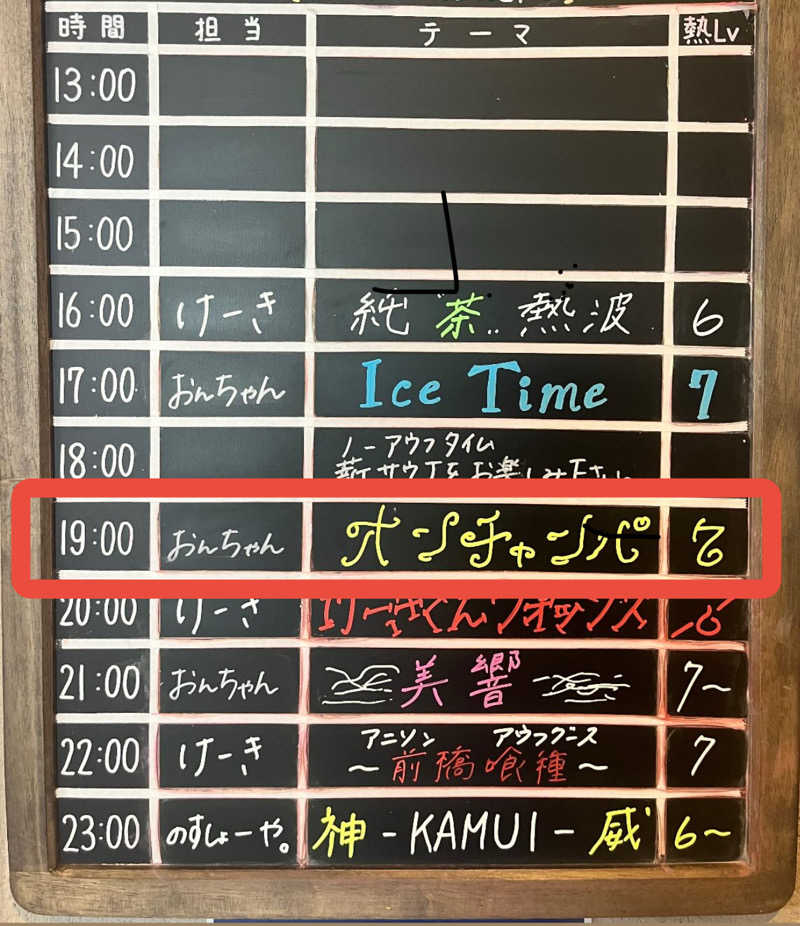 時間 担当 テーマ 熱Lv
13:00
14:00
15:00
16:00 けーき 純茶熱波 6
17:00 おんちゃん Ice Time 7
ノーアウフタイム
18:00 薪サウナをお楽しみ下さい
19:00 おんちゃん オンチャンパ
20:00 けーき
21:00 おんちゃん 美響 7〜
アニソン アウフグース
22:00 けーき 〜前橋喰種〜 7
23:00 のすしょーや。 神-KAMUI-威 6〜